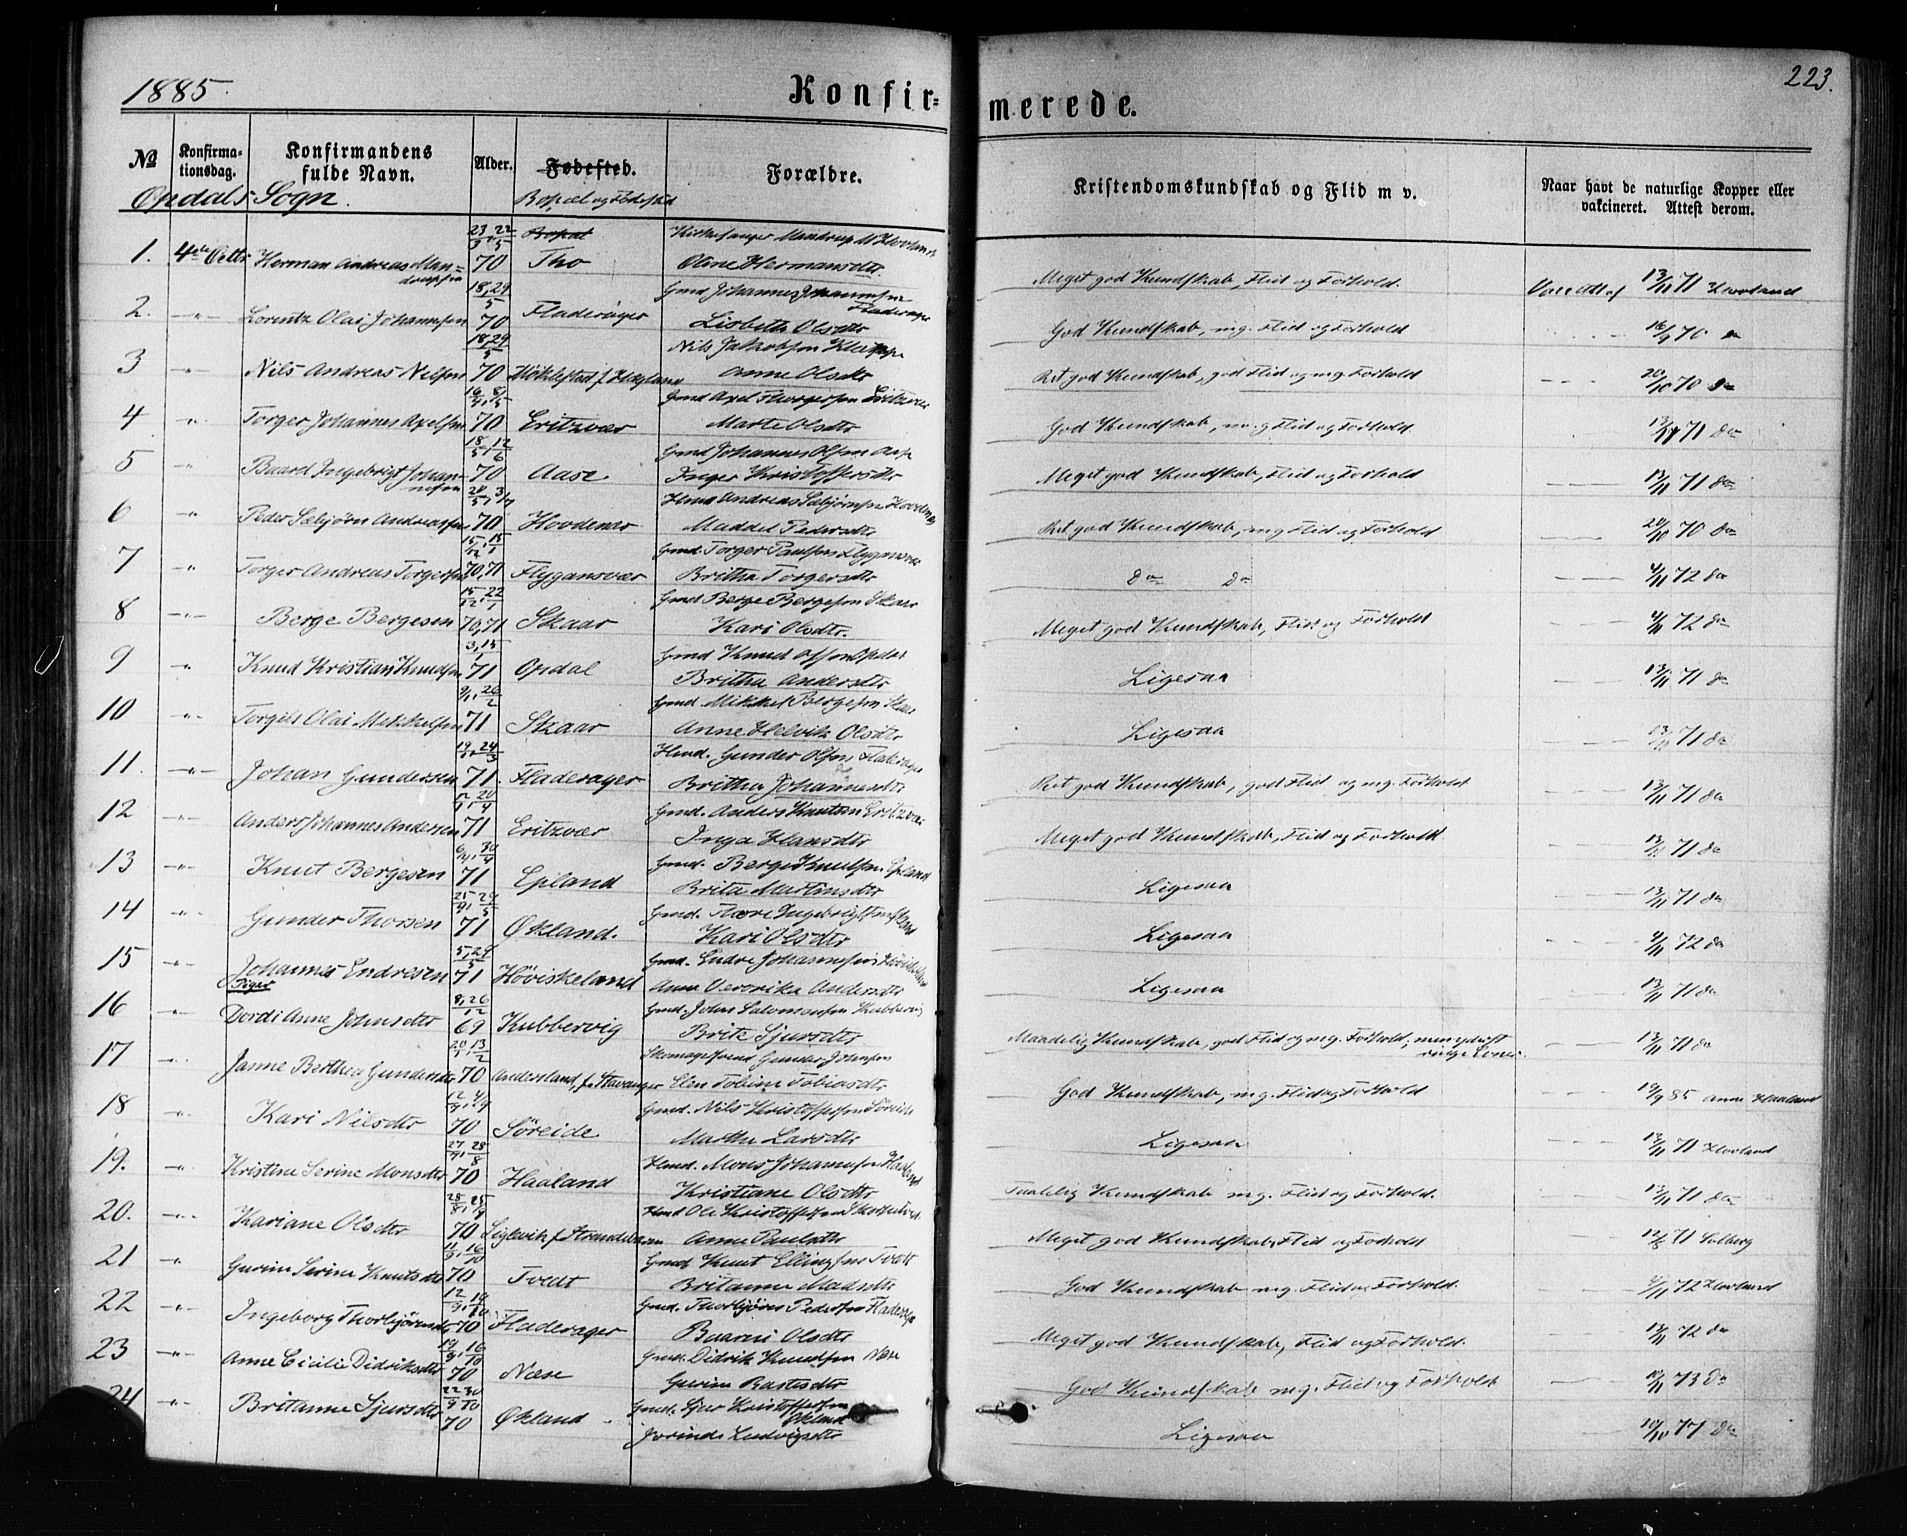 1885.
Konfir=
merede.
223.
No
Konfirma-
tionsdag.
Konfirmandens
fulde Navn.
Alder.
Fødested.
Bopæl og Fødested
Forældre.
Kristendomskundskab og Flid m v.
Naar havt de naturlige Kopper eller
vakcineret. Attest derom.
Opdals Sogn.
1. 4de Octbr Herman Andreas Man=
drupsen 70 Tho Kirkesanger Mandrup
Oline Hermansdtr. Meget god Kundskab, Flid og Forhold. 13/11 71 Hovland
2. " Lorentz Olai Johannsen 18,29/5 70 Fladerager Gmd Johannes Johannsen Fladerager
Lisbeth Olsdtr God Kundskab, mg. Flid og Forhold 70
3 " Nils Andreas Nilsen 18,29/5 70 Nils Jakobsen Kleppe
Anne Olsdtr Ret god Kundskab, god Flid og mg Forhold 20/10 70 do
4 " Torger Johannes Axelsen 70 Eritzvær Gmd Axel Thorgersen Eritzvær
Marte Olsdtr God Kundskab, mg Flid og Forhold. 71 do
5 " Baard Ingebrigt Johan-
nesen 18/5, 12/6 70 Aase Gmd Johannes Olsen Aase
Inger Kristoffersdtr Meget god Kundskab, Flid og Forhold 13/11 71 do
6 " Peder Sæbjørn Andreassen 70 Hovdenæs Hmd Andreas Sæbjørnsen Hovdenæs
Maddel Pedersdtr Ret god Kundskab, mg Flid og Forhold 20/10 70 do
7 " Torger Andreas Torgersen 15/12, 15/1 70,71 Flygansvær Gmd. Torger Paulsen Flygansvær
Britha Torgersdtr do do 4/11 72 do
8 " Berge Bergesen 15/12, 22/1 70,71 Skaar Gmd Berge Bergesen Skaar
Kari Olsdtr. Meget god Kundskab, Flid og Forhold 4/11 72 do
9 " Knud Kristian Knudsen 3,15/1 71 Opdal Gmd Knud Olsen Opdal
Britha Andersdtr Ligesaa 13/11 71 do
10 " Torgils Olai Mikkelsen 9/1, 26/2 71 Skaar Gmd Mikkel Bergesen Skaar
Anne Helvik Olsdtr Ligesaa 71 do
11. " Johan Gundersen 19/1, 24/3 71 Fladerager Hmd. Gunder Olsen Fladerager
Britha Johannesdtr Ret god Kundskab, god Flid og mg. Forhold 13/11 71 do
12 " Anders Johannes Andersen 71 Eritzvær Gmd. Anders Knutsen Eritzvær
Inga Hansdtr Meget god Kundskab, Flid og Forhold 13/11 71 do
13 " Knut Bergesen 6/4, 30/4 71 Epland Gmd. Berge Knutsen Epland
Brita Martinsdtr Ligesaa 13/11 71 do
14 " Gunder Thorsen 25/4, 29/5 71 Økland. Gmd. Thore Ingebrigtsen Økland
Kari Olsdtr Ligesaa 4/11 72 do
15 " Johannes Endresen 5,29/5 71 Høviskeland Gmd. Endre Johannesen Høviskeland
Anna Veronika Andersdtr Ligesaa 13/11 71 do
Piger
16 " Dordi Anne Johnsdtr 8,26/12 69 Kubbervig Gmd. John Salomonsen Kubbervig
Brite Sjursdtr Maadelig Kundskab, god Flid og mg. Forhold; 13/11 71 do
17 " Janne Berthea Gundersdtr 20/1, 13/2 70 Andersland, f. Stavanger Skomagersvend Gunder Johnsen
Elen Tobine Tobiasdtr God Kundskab, mg. Flid og Forhold 19/9 85 Anna Haaland
18 " Kari Nilsdtr 70 Søreide Gmd. Nils Kristoffersen Søreide
Martha Larsdtr Ligesaa 13/11 71 Hovland
19. " Kristine Serine Monsdtr 70 Haaland Hmd. Mons Johannesen Haaland
Kristiane Olsdtr Taalelig Kundskab mg. Flid og Forhold. 13/11 71 do
20. " Kariane Olsdtr 70 Hmd Ole Kristoffersen
Anne Paulsdtr Meget god Kundskab, Flid og Forhold 71 Solberg
21 " Gurine Serine Knutsdtr 11/9, 16/10 70 Tvedt Gmd Knut Ellingsen Tvedt
Britanne Madsdtr God Kundskab mg. Flid og Forhold. 72 Hovland
22 " Ingeborg Thorbjørnsdtr 12/9, 19/10 70 Fladerager Gmd. Thorbjørn Pedersen Fladerager
Baarni Olsdtr Meget god Kundskab, Flid og Forhold. 72 do
23 " Anne Cicilie Didriksdtr 70 Næse Gmd. Didrik Knudsen Næse
Gurine Bastesdtr God Kundskab mg. Flid og Forhold 73 do
24 " Britanne Sjursdtr 22/9 30/10 70 Økland Gmd. Sjur Kristoffersen Økland
Jorinde Ludvigsdtr Ligesaa 71 do